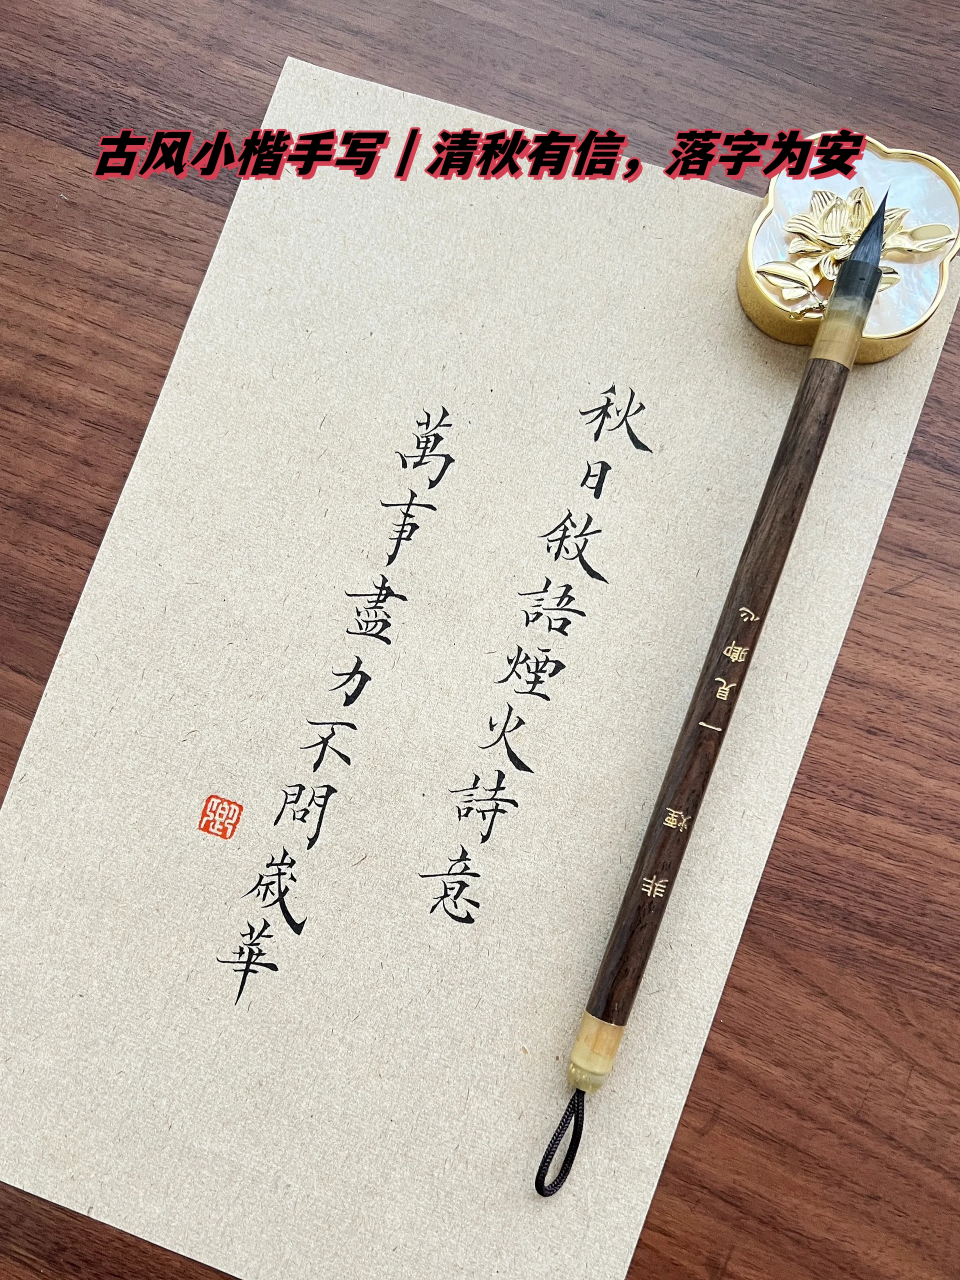 古风小楷手写｜清秋有信，落字为安
秋日敘語煙火詩意
萬事盡力不問歲華
卿
心卿見一